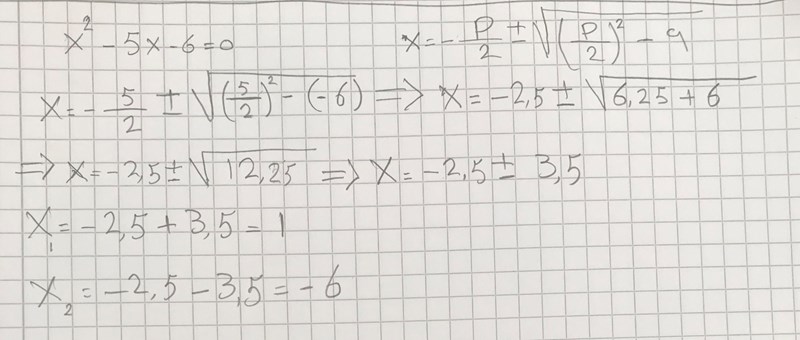 x² - 5x - 6 = 0
x = - p/2 ± √((p/2)² - q)
x = - 5/2 ± √((5/2)² - (-6)) => x = -2,5 ± √(6,25 + 6)
=> x = -2,5 ± √(12,25) => x = -2,5 ± 3,5
x₁ = -2,5 + 3,5 = 1
x₂ = -2,5 - 3,5 = -6